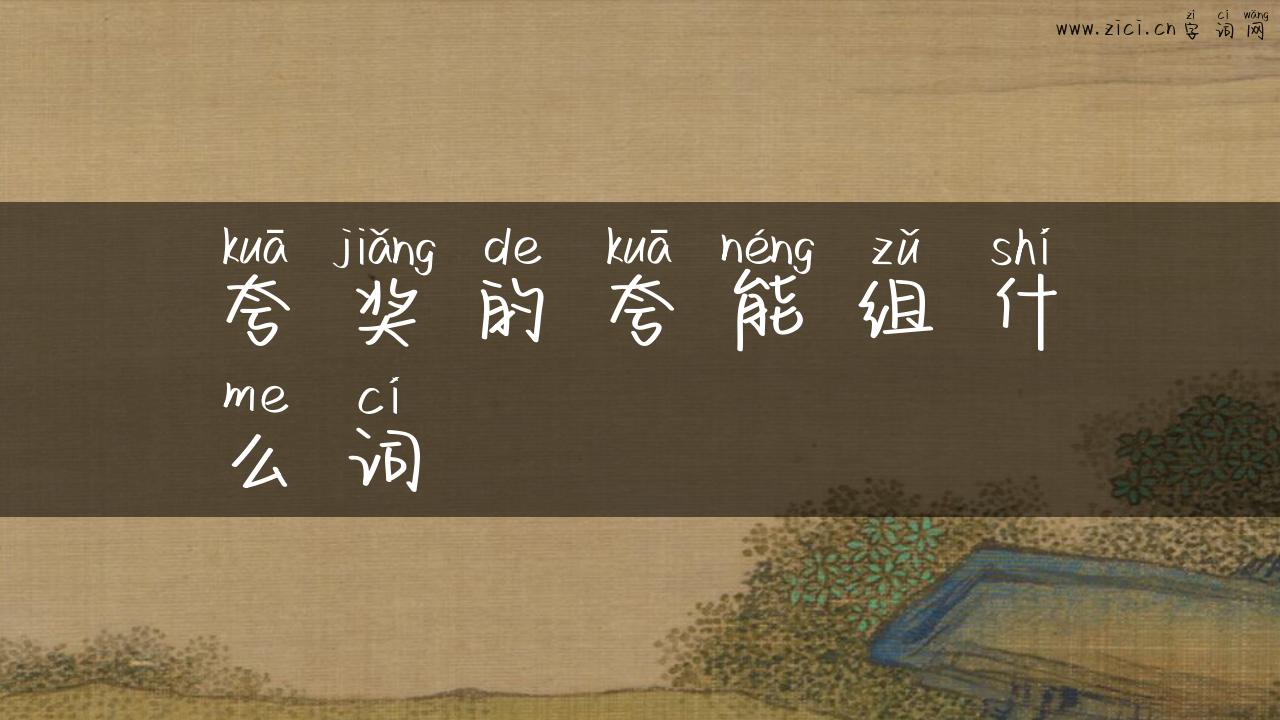 zì cí wǎng
www.zici.cn字词网
kuā jiǎng de kuā néng zǔ shí
夸奖的夸能组什
me cí
么词